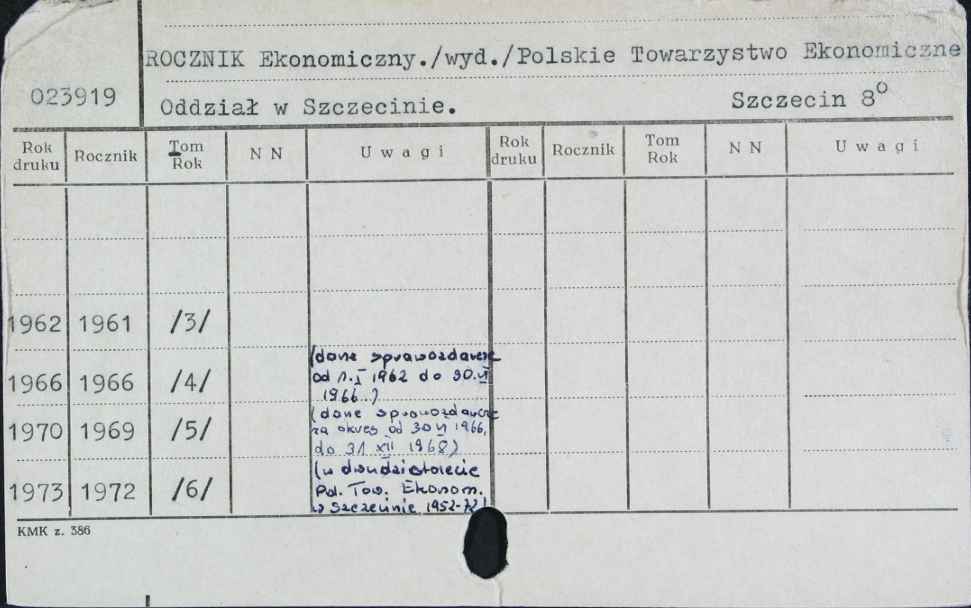 ROCZNIK Ekonomiczny./wyd./Polskie Towarzystwo Ekonomiczne
023919
Oddział w Szczecinie. Szczecin 8°
Rok druku Rocznik Tom Rok N N U w a g i Rok druku Rocznik Tom Rok N N U w a g i
1962 1961 /3/
1966 1966 /4/ (dane sprawozdawcze
od 1.I 1962 do 30.VI
1966.)
1970 1969 /5/ (dane sprawozdawcze
za okres od 30 VI 1966,
do 31 XII 1968)
1973 1972 /6/ (w dwudziestolecie
Pol. Tow. Ekonom.
w Szczecinie 1952-72)
KMK z. 386